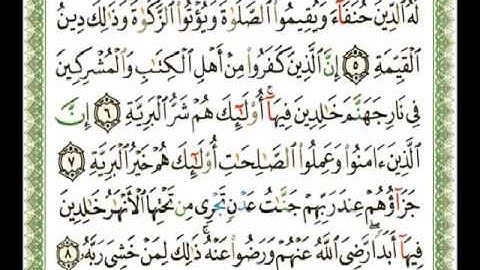 لَهُ الدِّينَ حُنَفَآءَ وَيُقِيمُوا۟ الصَّلَوٰةَ وَيُؤْتُوا۟ الزَّكَوٰةَ وَذَٰلِكَ دِينُ
الْقَيِّمَةِ ٥ إِنَّ الَّذِينَ كَفَرُوا۟ مِنْ أَهْلِ الْكِتَٰبِ وَالْمُشْرِكِينَ
فِى نَارِ جَهَنَّمَ خَٰلِدِينَ فِيهَآ أُو۟لَٰٓئِكَ هُمْ شَرُّ الْبَرِيَّةِ ٦ إِنَّ
الَّذِينَ ءَامَنُوا۟ وَعَمِلُوا۟ الصَّٰلِحَٰتِ أُو۟لَٰٓئِكَ هُمْ خَيْرُ الْبَرِيَّةِ ٧
جَزَآؤُهُمْ عِندَ رَبِّهِمْ جَنَّٰتُ عَدْنٍ تَجْرِى مِن تَحْتِهَا الْأَنْهَٰرُ خَٰلِدِينَ
فِيهَآ أَبَدًا رَّضِىَ اللَّهُ عَنْهُمْ وَرَضُوا۟ عَنْهُ ذَٰلِكَ لِمَنْ خَشِىَ رَبَّهُ ٨